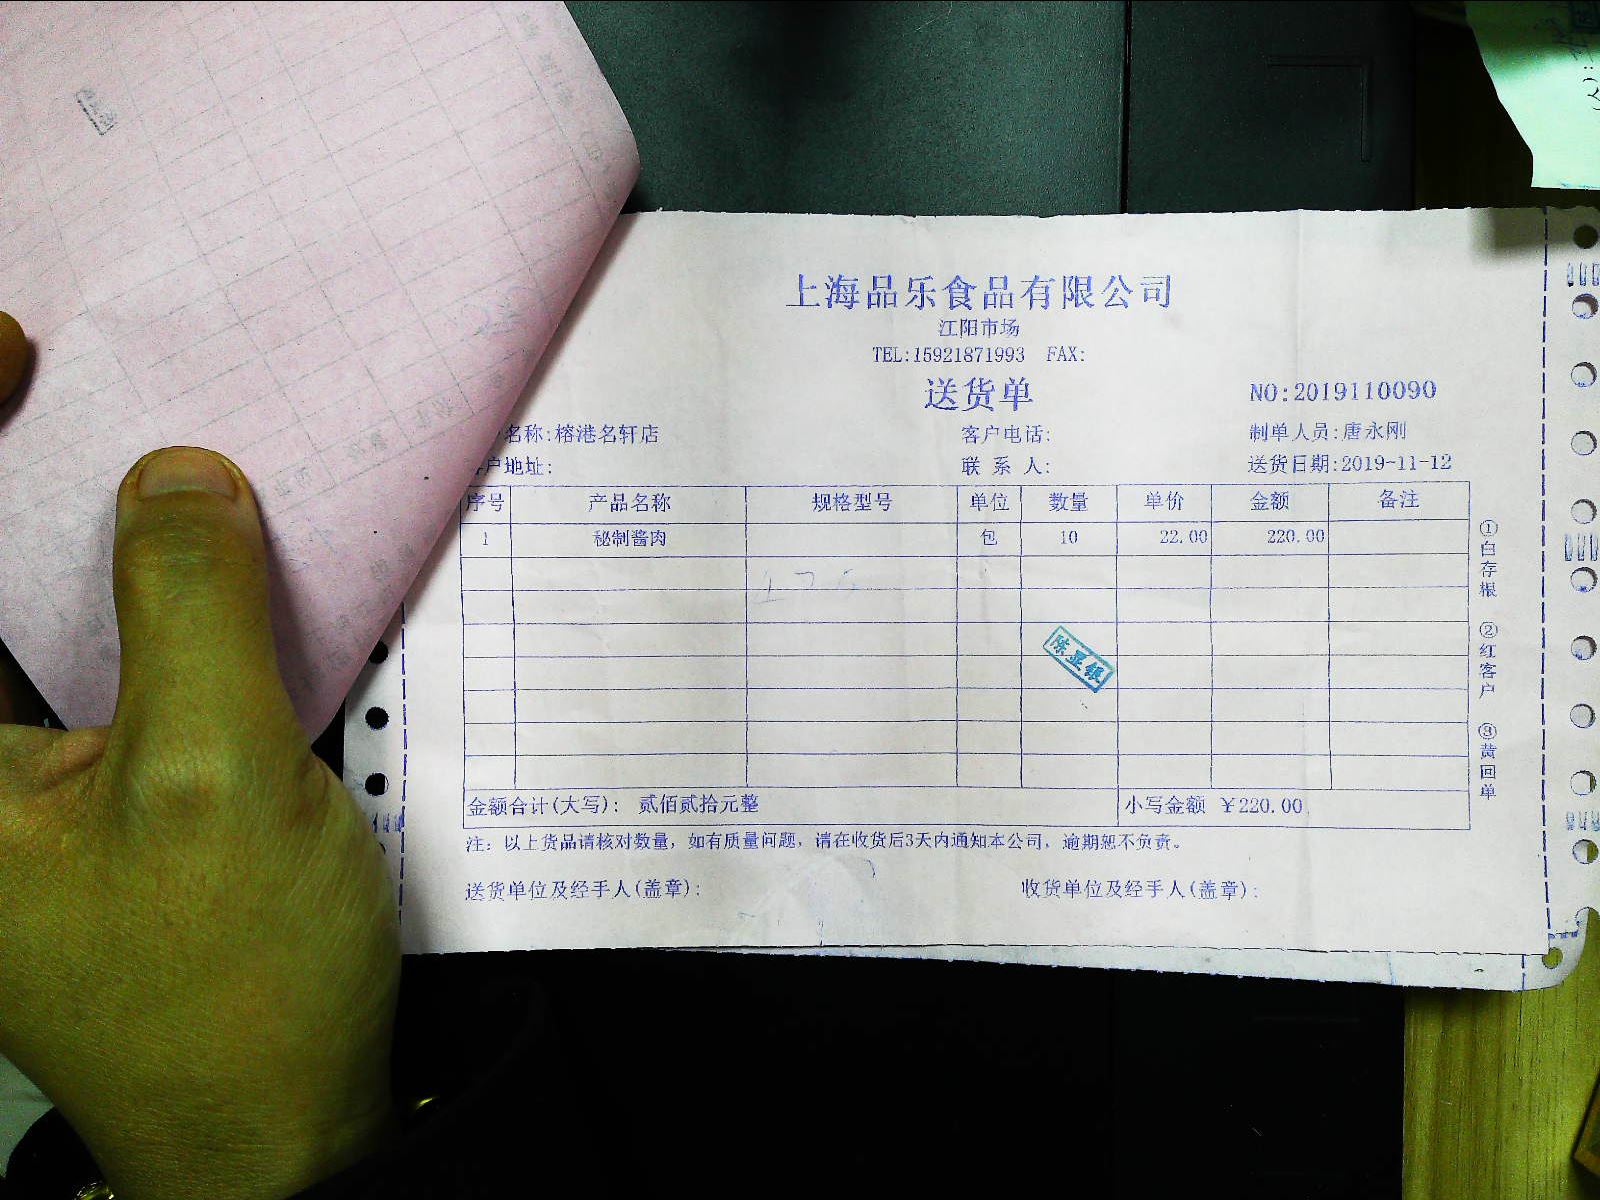 上海品乐食品有限公司
江阳市场
TEL:15921871993 FAX:
送货单
NO:2019110090
名称:榕港名轩店 客户电话: 制单人员:唐永刚
户地址: 联系人: 送货日期:2019-11-12
序号 产品名称 规格型号 单位 数量 单价 金额 备注
1 秘制酱肉 包 10 22.00 220.00
陈亚银
金额合计(大写): 贰佰贰拾元整 小写金额 ￥220.00
注: 以上货品请核对数量, 如有质量问题, 请在收货后3天内通知本公司, 逾期恕不负责。
送货单位及经手人(盖章): 收货单位及经手人(盖章):
①白存根 ②红客户 ③黄回单